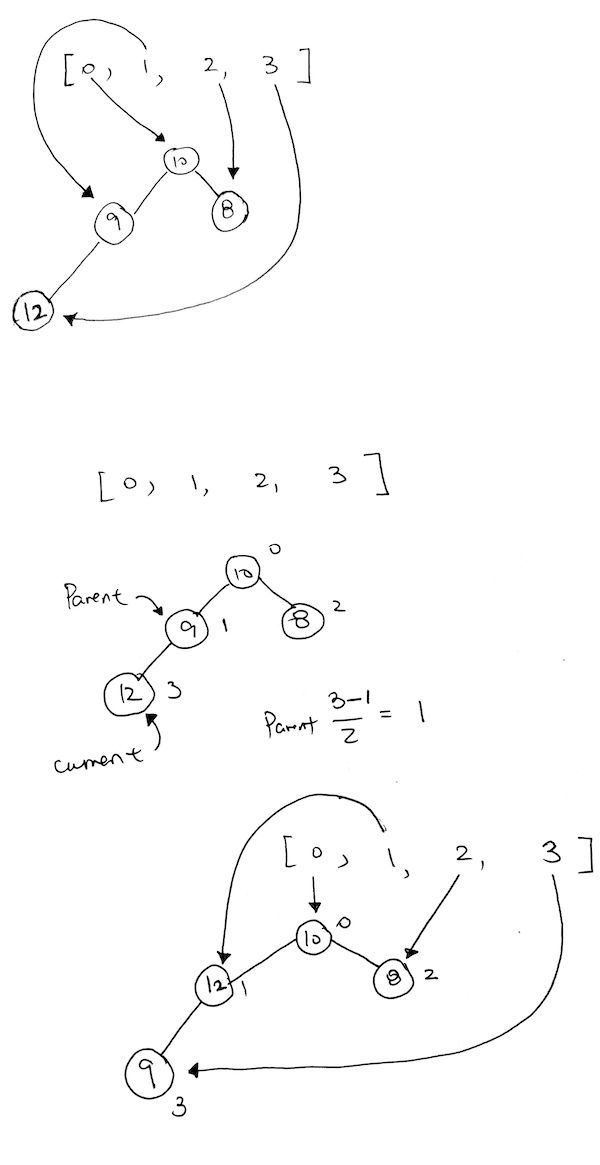 [0, 1, 2, 3]
10
9 8
12
[0, 1, 2, 3]
10 0
Parent 9 1 8 2
12 3
Parent 3-1/2 = 1
current
[0, 1, 2, 3]
10 0
12 1 8 2
9
3